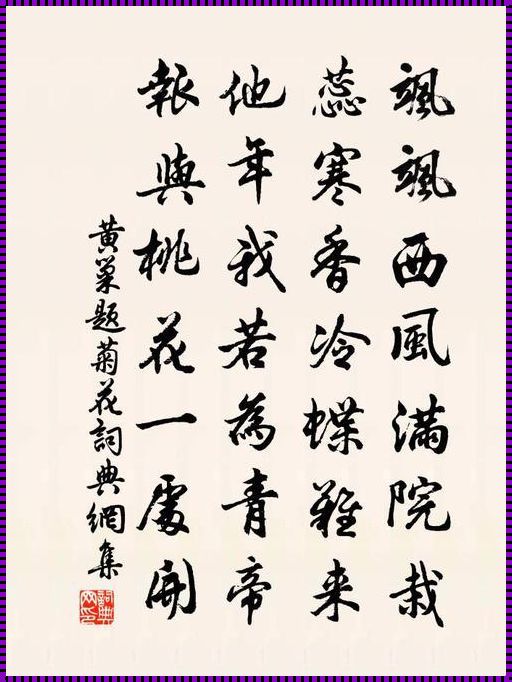 颯颯西風滿院栽
蕊寒香冷蝶難来
他年我若為青帝
報與桃花一處開
黃巢題菊花詞典網集
詞典网印